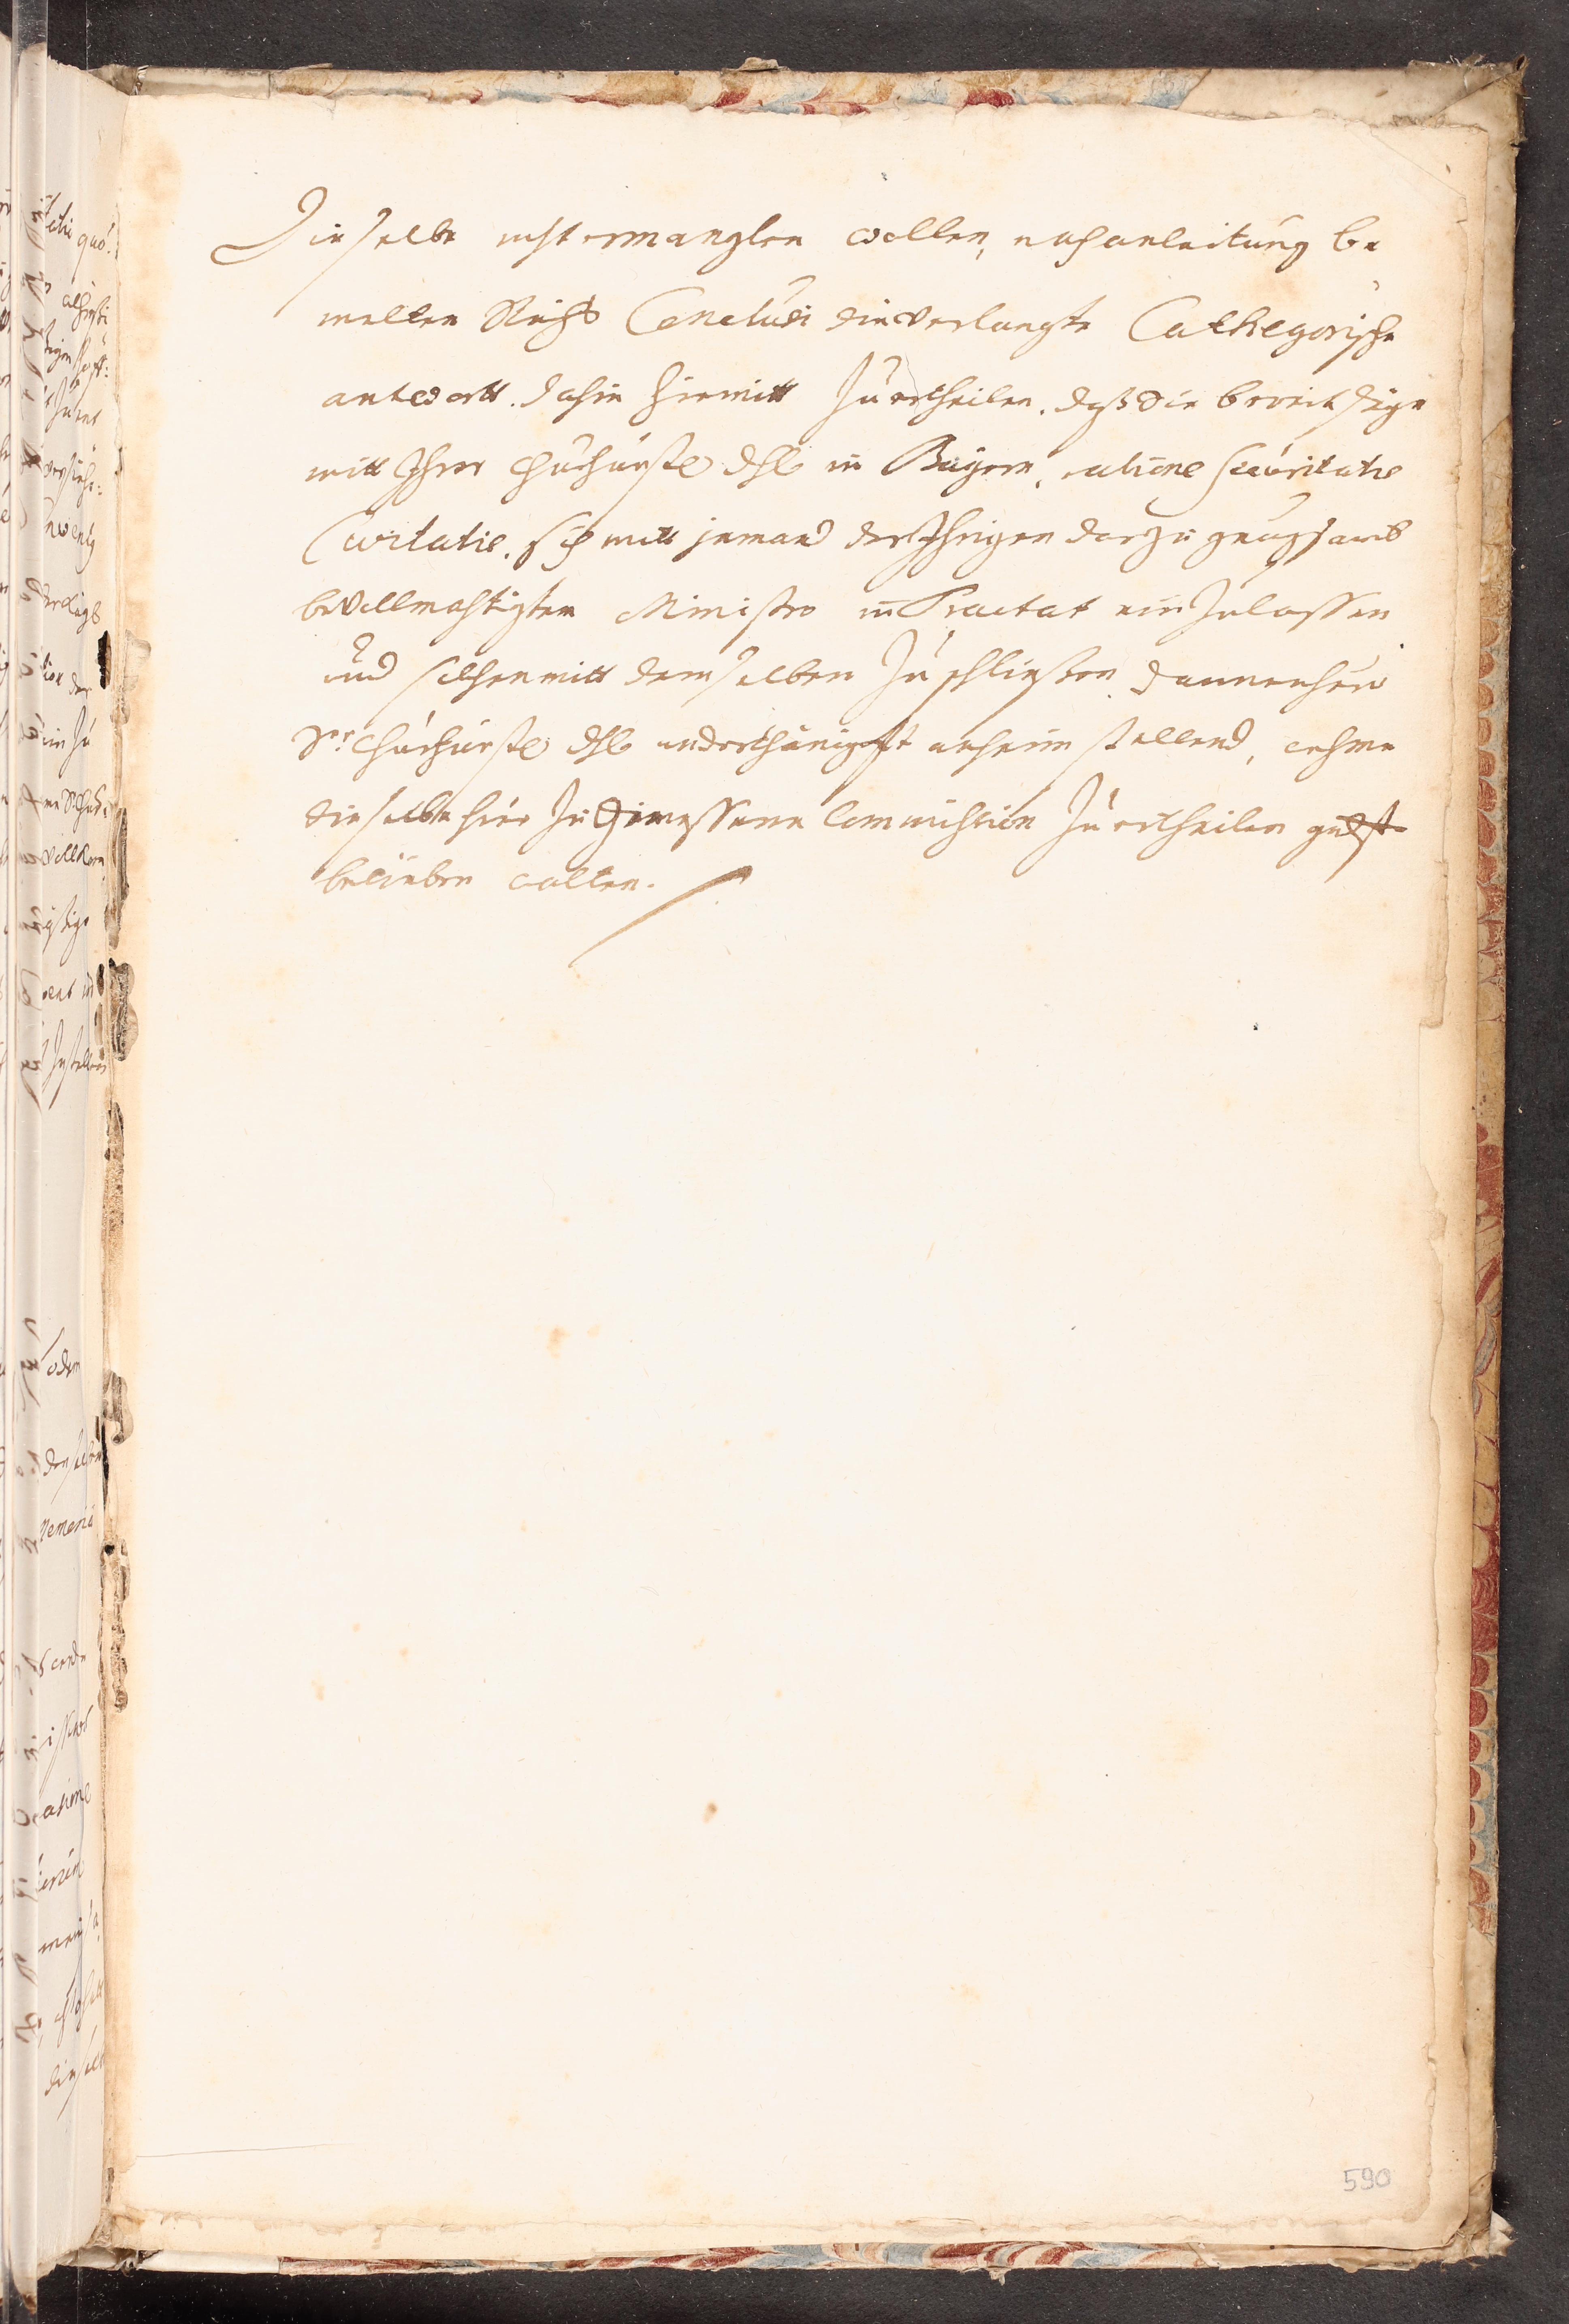 Dieselbe nicht ermanglen wollen, nach anleitung be
melten Reichs Conclusi die verlangte Cathegorische
antwortt dahin hiemitt zu ertheilen, daß Sie bereith seye
mitt Ihrer Churfürstl Dhl in Bayern, ratione Securitatis
Civitatis, sich mitt jemand der Ihrigen darzu gnugsamb
bevollmächtigten Ministro in Tractat ein zulassen
und solchen mitt demselben zu schliessen, dannenhero
Sr: Churfürstl Dhl underthänigst anheim stellend, ohne
dieselbe hier zu Gemessene Commission zu ertheilen gdst
belieben wolten.
590